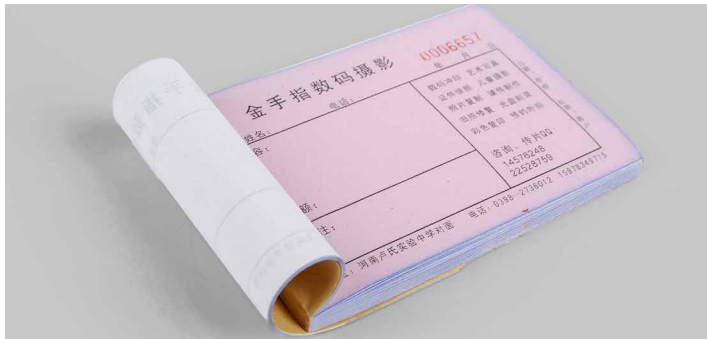 手指数
金手指数码摄影
0006657
年 月 日
姓名:
电话:
容:
额:
注:
数码冲印 艺术写真
证件快照 儿童摄影
照片复制 课件制作
旧照修复 光盘刻录
彩色复印 婚纱外拍
咨询、传片QQ
14576248
22528759
:河南卢氏实验中学对面 电话:0398-2738012 15978349715